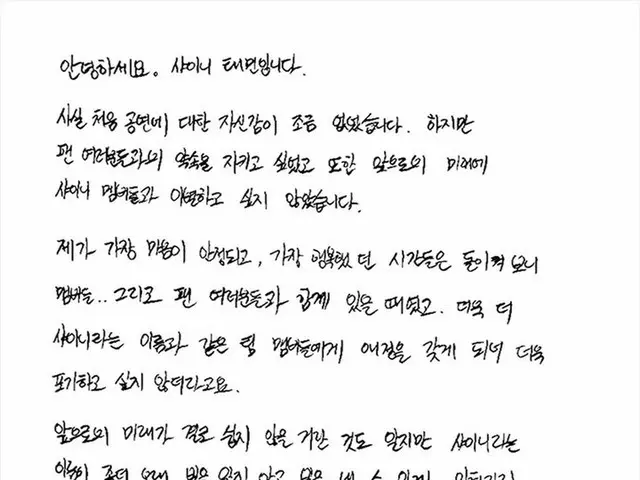 안녕하세요. 샤이니 태민입니다.
사실 처음 공연에 대한 자신감이 조금 없었습니다. 하지만
팬 여러분들과의 약속을 지키고 싶었고 또한 앞으로의 미래에
샤이니 멤버들과 이별하고 싶지 않았습니다.
제가 가장 마음이 안정되고, 가장 행복했던 시간들은 돌이켜 보니
멤버들.. 그리고 팬 여러분들과 함께 있을 때였고. 더욱 더
샤이니라는 이름과 같은 팀 멤버들에게 애정을 갖게 되니 더욱
포기하고 싶지 않더라고요.
앞으로의 미래가 결코 쉽지 않을 거란 것도 알지만 샤이니라는
이름이 좀더 오래 빛을 잃지 않고